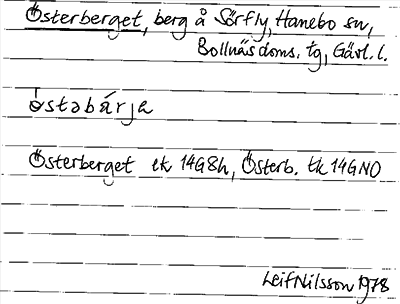 Österberget, berg å Sörfly, Hanebo sn,
Bollnäs doms. tg, Gävl. l.
östəbárja
Österberget ek 14G8h, Österb. tk 14GNO
Leif Nilsson 1978